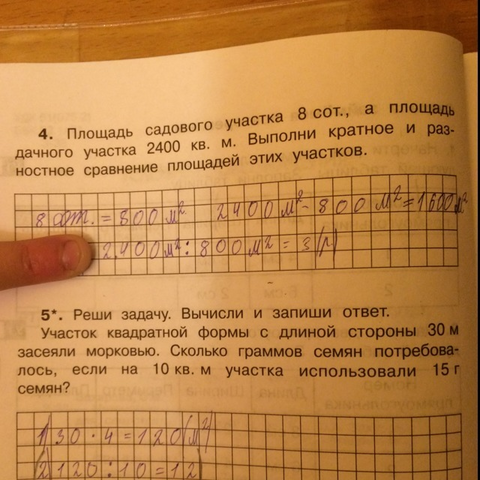 4. Площадь садового участка 8 сот., а площадь
дачного участка 2400 кв. м. Выполни кратное и раз-
ностное сравнение площадей этих участков.
8 сот. = 800 м² 2400 м² - 800 м² = 1600 м²
2400 м² : 800 м² = 3 (р)
5*. Реши задачу. Вычисли и запиши ответ.
Участок квадратной формы с длиной стороны 30 м
засеяли морковью. Сколько граммов семян потребова-
лось, если на 10 кв. м участка использовали 15 г
семян?
1) 30 · 4 = 120 (м²)
2) 120 : 10 = 12